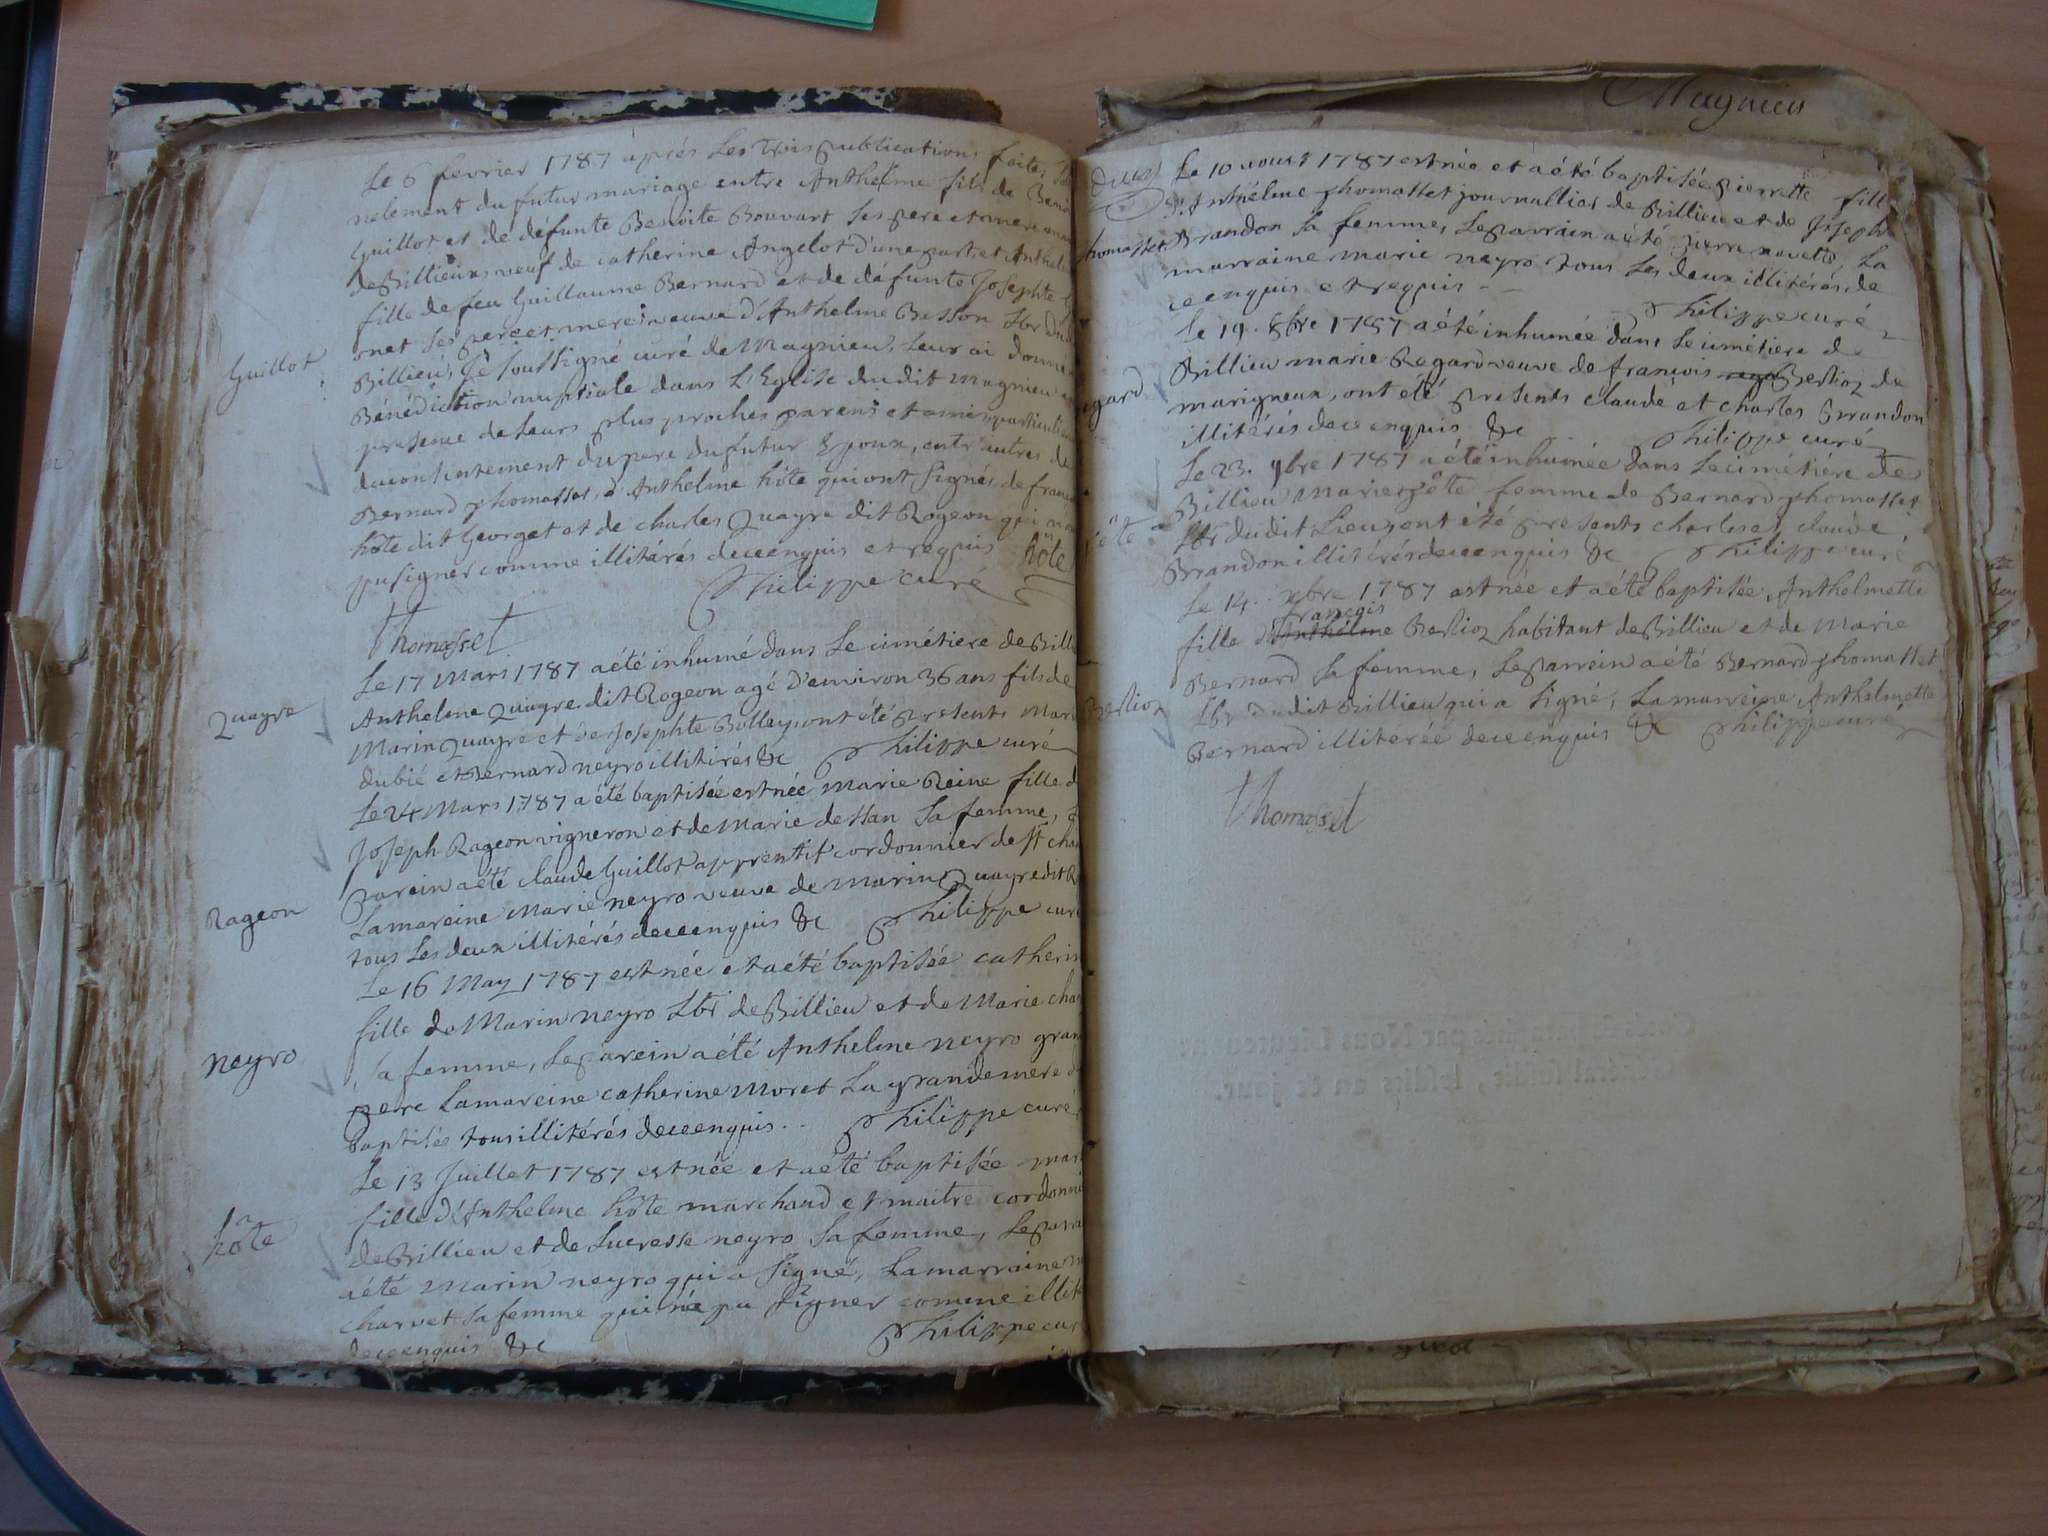 Le 6 fevrier 1787 après Les trois publications faites
nelement du futur mariage entre Anthelme fils de
Guillot et de défunte Benoite Bouvart Ses pere et mere
de Billieu veuf de catherine Angelot d'une part, et
fille de feu Guillaume Bernard et de défunte Josephte
Ses pere et mere veuve d'Anthelme Besson Lbr
Guillot
Billieu, Je Soussigné curé de Magnieu, Leur ai donné
Bénédiction nuptiale dans L'Eglise dudit Magnieu
presence de Leurs plus proches parens et amis
du consentement du pere du futur Epoux, entr'autres de
Bernard thomasset, d'Anthelme hôte qui ont Signés, de
hôte dit Georget et de charles Quayre dit Rogeon qui
pu signer comme illitérés de ce enquis et requis hôte
Philippe curé
Thomasset
Le 17 Mars 1787 a été inhumé dans Le cimétiere de
Quayre
Anthelme Quayre dit Rogeon agé d'environ 36 ans fils de
Marin Quayre et de Josephte Bolley, ont été presents
dubié et Bernard neyro illitirés &c Philippe curé
Le 24 Mars 1787 a été baptisée est née Marie Reine fille
Joseph Rageon vigneron et de Marie dessan Sa femme,
parein a été claude Guillot apprentif cordonnier de St
Rageon
La mareine Marie neyro veuve de Marin Quayre dit
tous Les deux illitérés de ce enquis &c Philippe
Le 16 May 1787 est née et a été baptisée
fille de Marin neyro Lbr de Billieu et de Marie
neyro
Sa femme, Le parein a été Anthelme neyro
pere La mareine catherine Moret La grandemere
baptisée tous illitérés de ce enquis .. Philippe curé
Le 13 Juillet 1787 est née et a été baptisée
hôte
fille d'Anthelme hôte marchand et maitre
de Billieu et de Lucresse neyro Sa femme, Le
a été Marin neyro qui a Signé, La marraine
charvet Sa femme qui n'a pu Signer comme
de ce enquis &c Philippe
Magnieu
Le 10 1787 est née et a été baptisée pierrette
d'Anthélme thomasset journallier de Billieu et de Josephte
thomasset
Brandon Sa femme, Le parrain a été pierre, La
marraine marie neyro tous Les deux illitérés de
ce enquis et requis - Philippe curé
Le 19. 1787 a été inhumée dans Le cimétiere de
Billieu marie Regard veuve de francois Berlioz de
marigneux, ont été presents claude et charles Brandon
illitérés de ce enquis &c Philippe curé
Le 23. 9bre 1787 a été inhumée dans Le cimétiére de
Billieu Marie hôte femme de Bernard thomasset
Lbr dudit Lieu, ont été presents charles et claude
Brandon illitérés de ce enquis &c Philippe curé
Le 14. 1787 est née et a été baptisée Anthelmette
francois
fille d'Anthélme Berlioz habitant de Billieu et de Marie
Bernard Sa femme, Le parrein a été Bernard thomasset
Berlioz
Lbr dudit Billieu qui a Signé, La marreine Anthelmette
Bernard illiterée de ce enquis &c Philippe curé
Thomasset